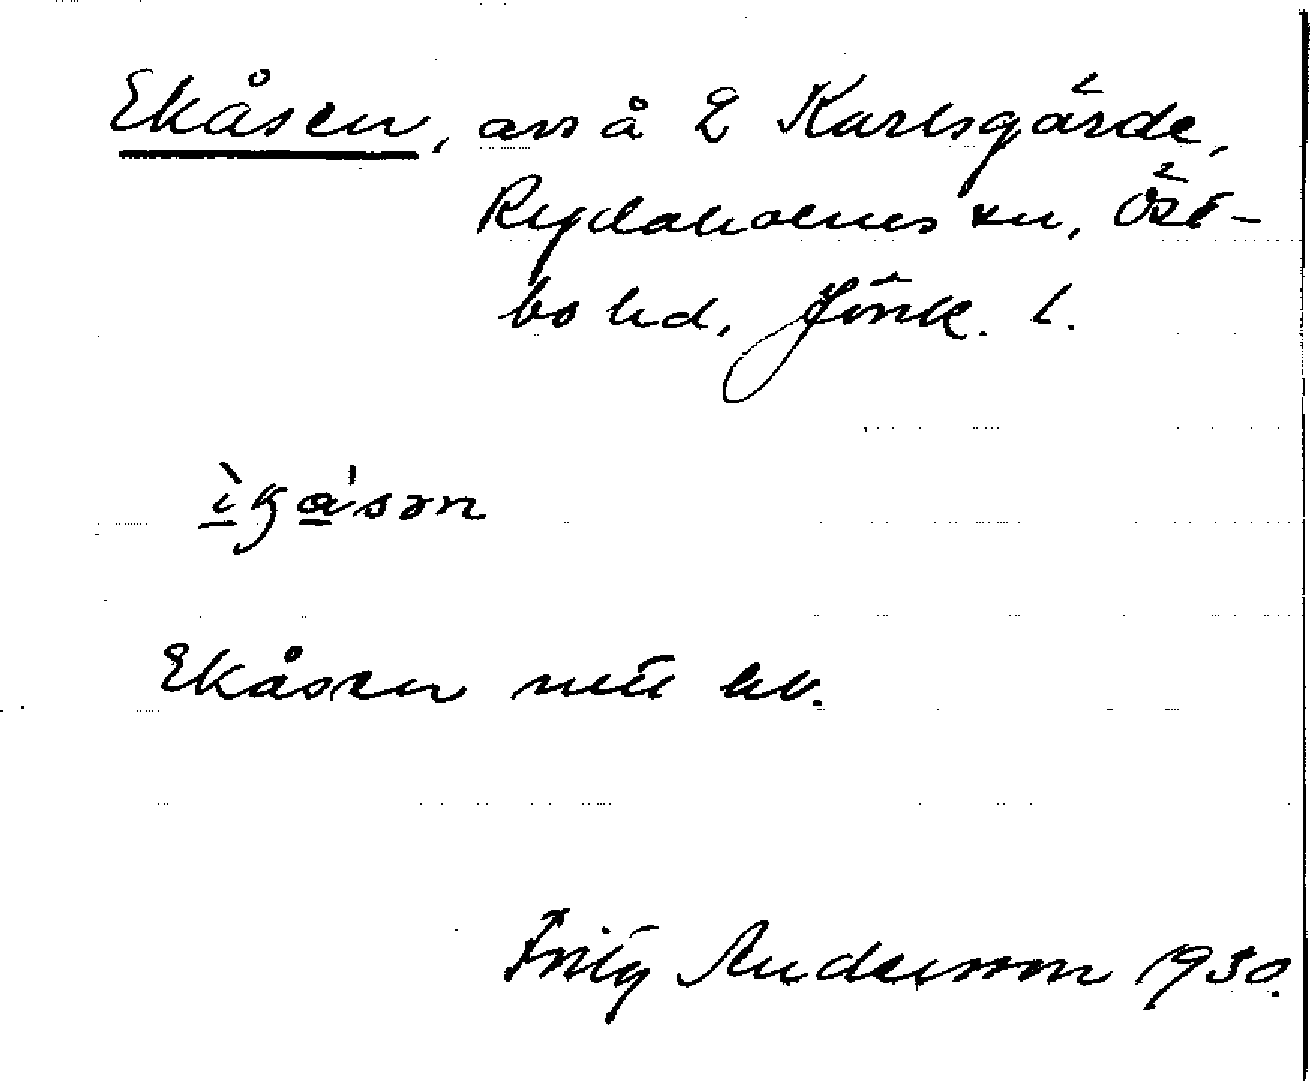 Ekåsen, avs å 2 Karlsgärde,
Rydaholms sn, Öst-
bo hd, Jönk. l.
Ekåsen nitt hv.
Fritz Andersson 1930.